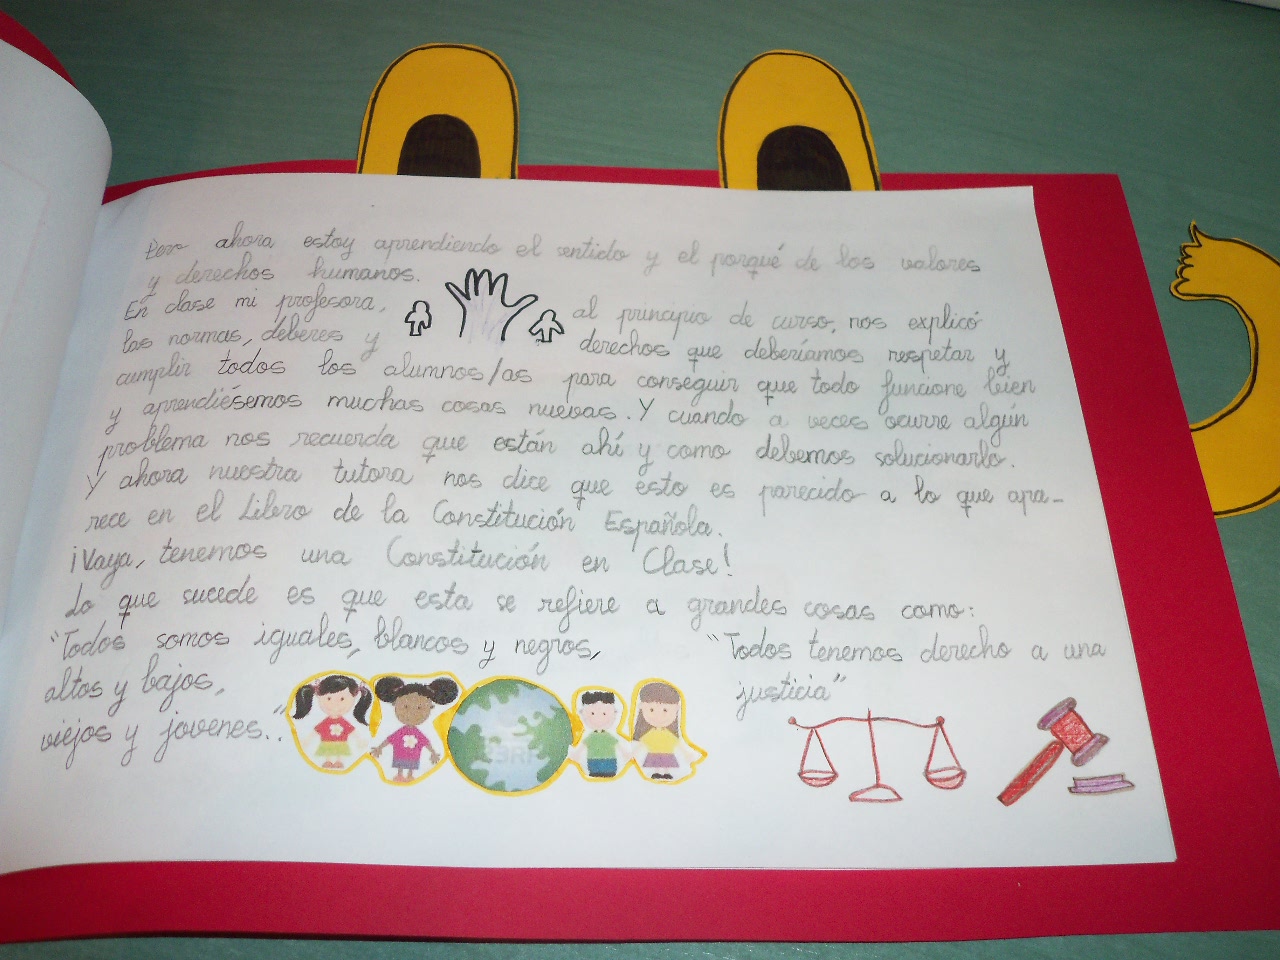 Por ahora estoy aprendiendo el sentido y el porqué de los valores
y derechos humanos.
En clase mi profesora, al principio de curso, nos explicó
las normas, deberes y derechos que deberíamos respetar y
cumplir todos los alumnos/as para conseguir que todo funcione bien
y aprendiésemos muchas cosas nuevas. Y cuando a veces ocurre algún
problema nos recuerda que están ahí y como debemos solucionarlo.
Y ahora nuestra tutora nos dice que esto es parecido a lo que apa-
rece en el Libro de la Constitución Española.
¡Vaya, tenemos una Constitución en Clase!
Lo que sucede es que esta se refiere a grandes cosas como:
"Todos somos iguales, blancos y negros,
altos y bajos,
viejos y jovenes..."
"Todos tenemos derecho a una
justicia"